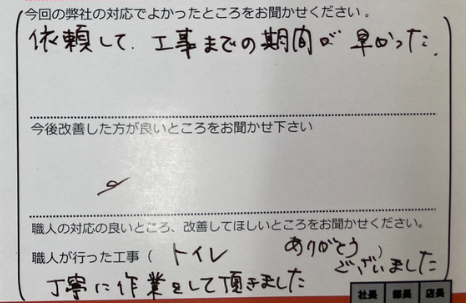 今回の弊社の対応でよかったところをお聞かせください。
依頼して、工事までの期間が早かった。
今後改善した方が良いところをお聞かせ下さい
職人の対応の良いところ、改善してほしいところをお聞かせください。
職人が行った工事（ トイレ ）
ありがとうございました
丁寧に作業をして頂きました
社長 部長 店長